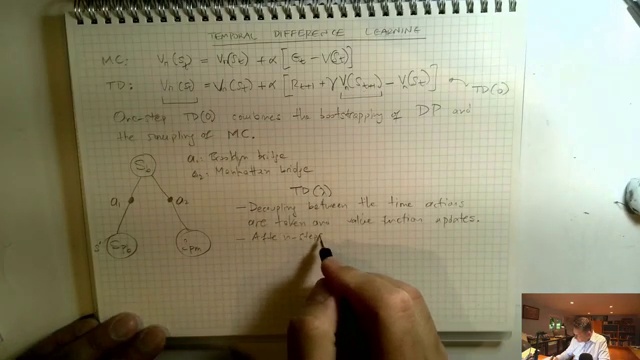 TEMPORAL DIFFERENCE LEARNING
MC: Vπ(St) = Vπ(St) + α [Gt − V(St)]
TD: Vπ(St) = Vπ(St) + α [Rt+1 + γ Vπ(St+1) − Vπ(St)]
TD(0)
One-step TD(0) combines the bootstrapping of DP and
the sampling of MC.
a1: Brooklyn bridge
a2: Manhattan bridge
a1
a2
s'
2pm
TD(λ)
- Decoupling between the time actions
are taken and value function updates.
- After n-step